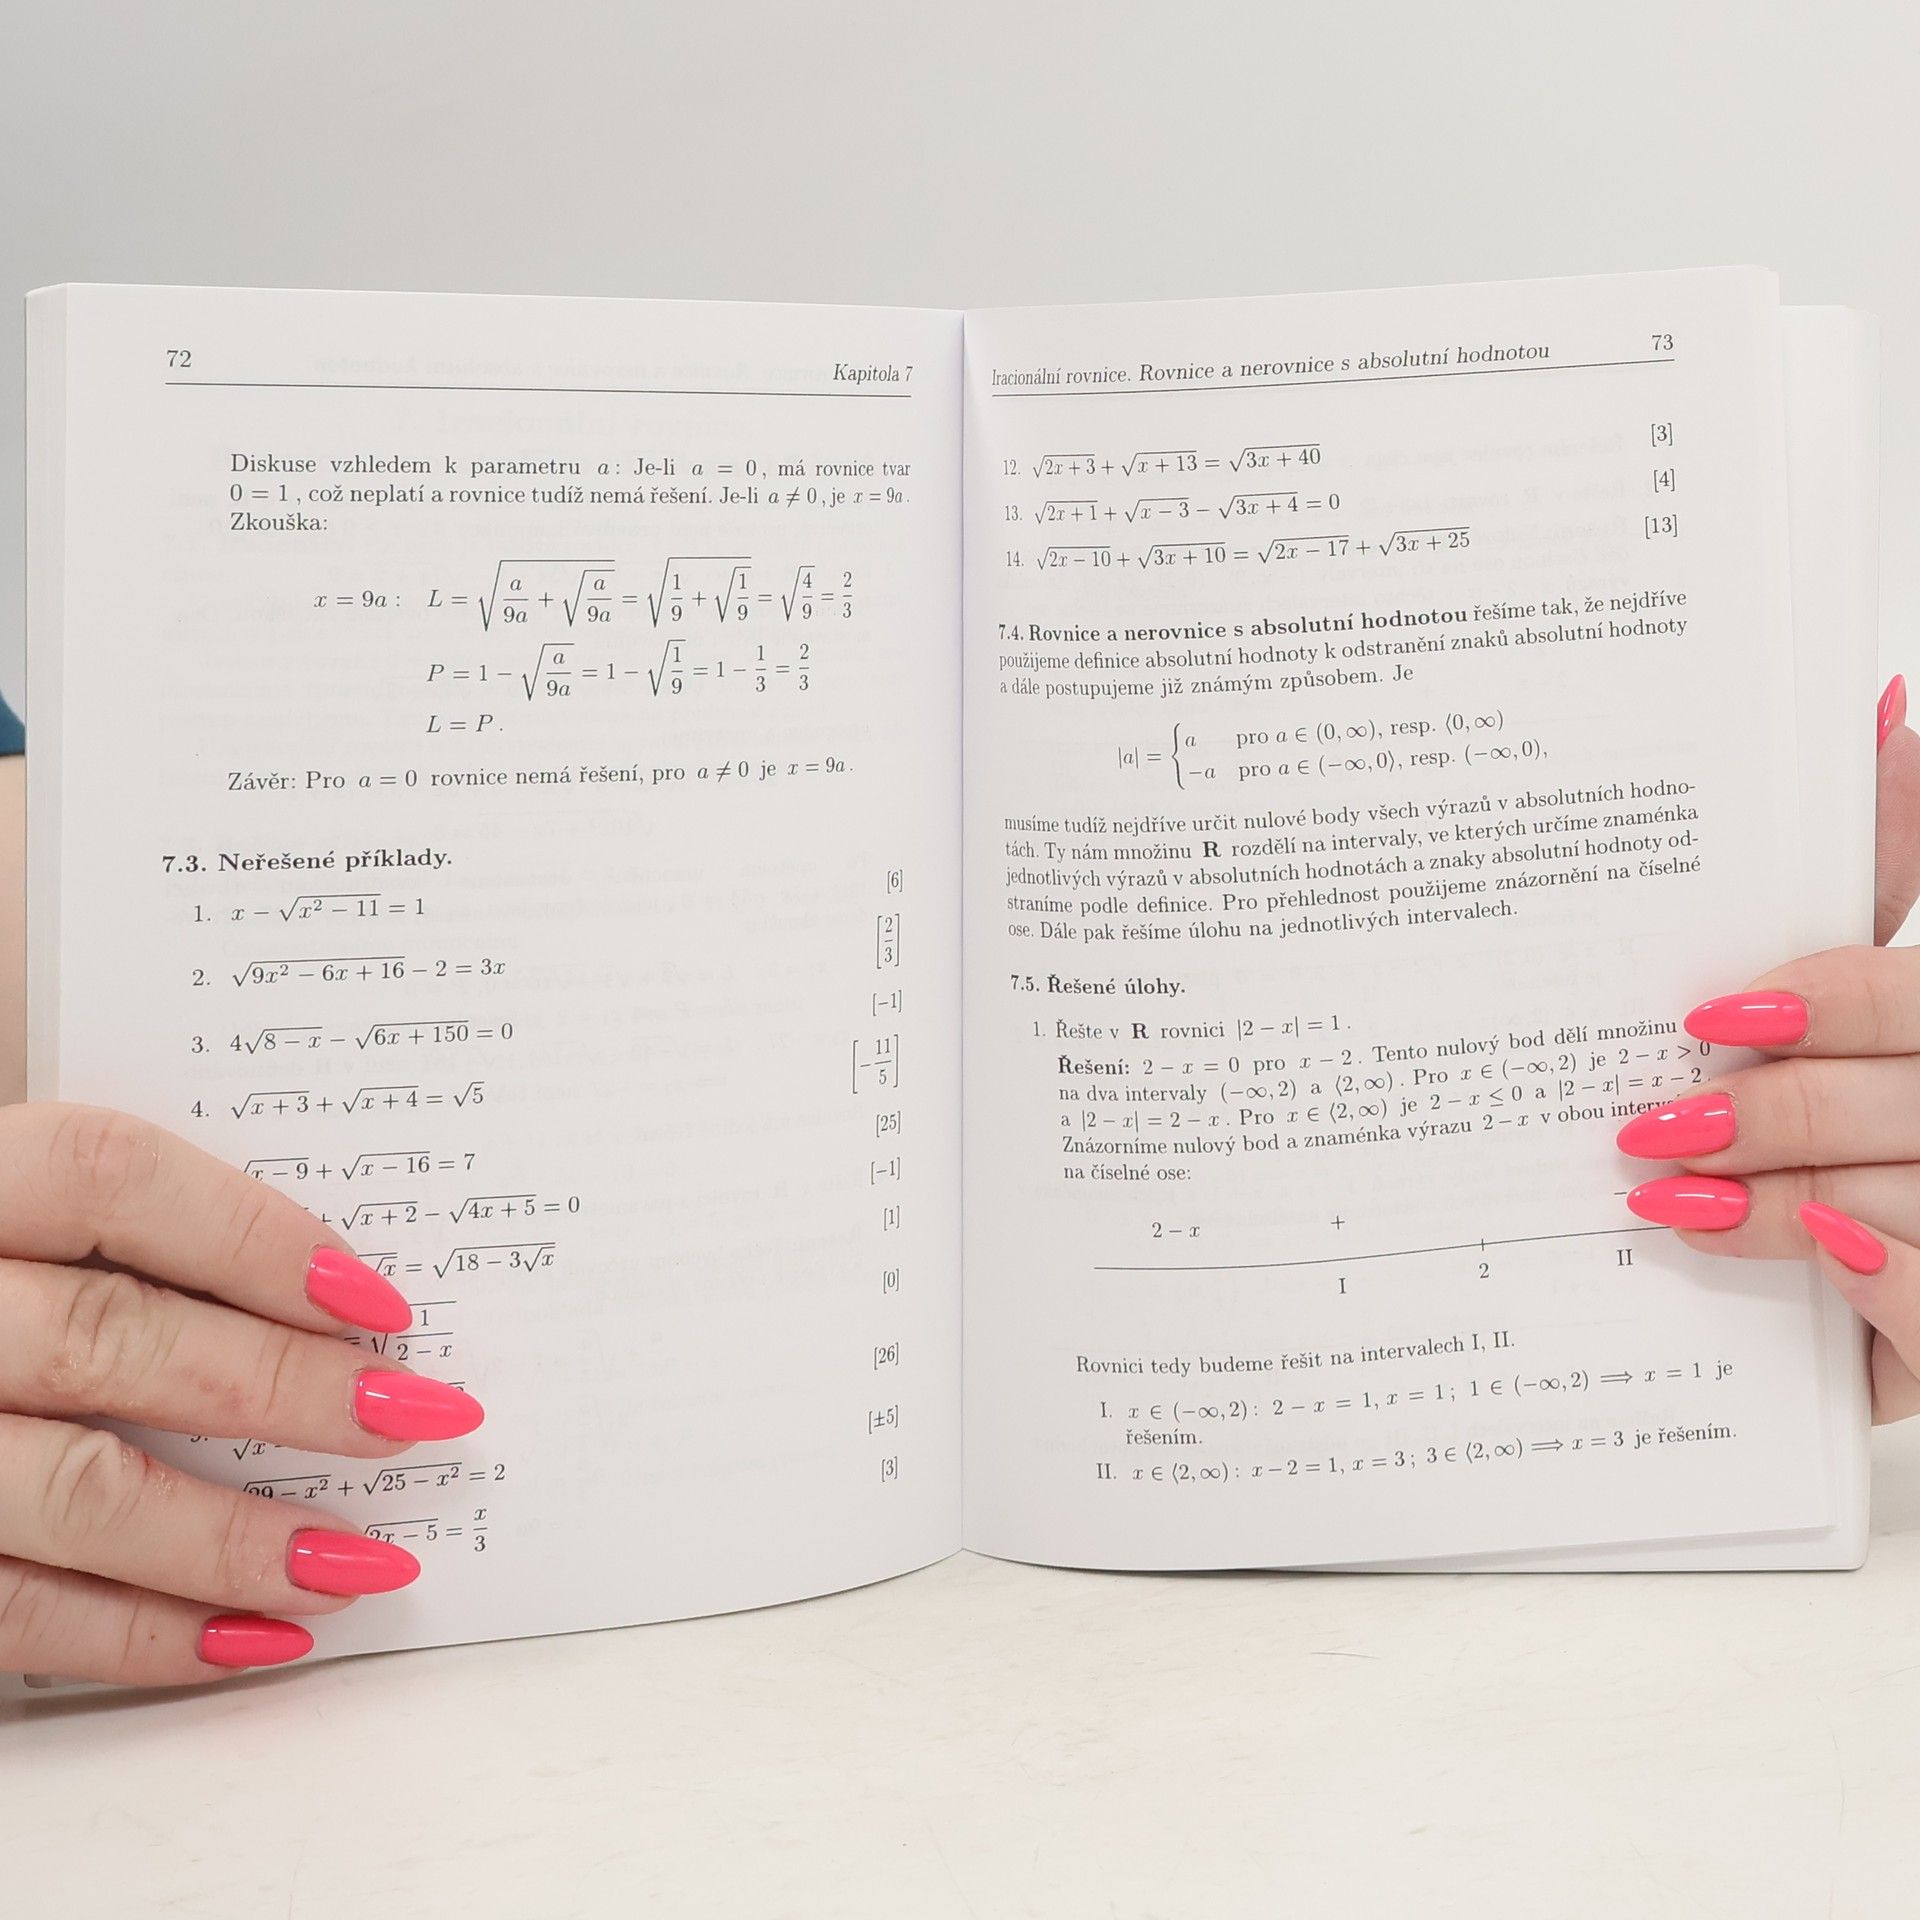 72
Kapitola 7
Diskuse vzhledem k parametru a: Je-li a = 0, má rovnice tvar
0 = 1, což neplatí a rovnice tudíž nemá řešení. Je-li a ≠ 0, je x = 9a.
Zkouška:
x = 9a: L = √(a/9a + √(a/9a)) = √(1/9 + √(1/9)) = √(4/9) = 2/3
P = 1 − √(a/9a) = 1 − √(1/9) = 1 − 1/3 = 2/3
L = P.
Závěr: Pro a = 0 rovnice nemá řešení, pro a ≠ 0 je x = 9a.
7.3. Neřešené příklady.
1. x − √(x² − 11) = 1 [6]
2. √(9x² − 6x + 16) − 2 = 3x [2/3]
3. 4√(8 − x) − √(6x + 150) = 0 [−1]
4. √(x + 3) + √(x + 4) = √5 [−11/5]
√(x − 9) + √(x − 16) = 7 [25]
+ √(x + 2) − √(4x + 5) = 0 [−1]
√x = √(18 − 3√x) [1]
= √(1/(2 − x)) [0]
√x − [26]
√(29 − x²) + √(25 − x²) = 2 [±5]
√(2x − 5) = x/3 [3]
Iracionální rovnice. Rovnice a nerovnice s absolutní hodnotou
73
12. √(2x + 3) + √(x + 13) = √(3x + 40) [3]
13. √(2x + 1) + √(x − 3) − √(3x + 4) = 0 [4]
14. √(2x − 10) + √(3x + 10) = √(2x − 17) + √(3x + 25) [13]
7.4. Rovnice a nerovnice s absolutní hodnotou řešíme tak, že nejdříve
použijeme definice absolutní hodnoty k odstranění znaků absolutní hodnoty
a dále postupujeme již známým způsobem. Je
|a| = { a pro a ∈ (0, ∞), resp. ⟨0, ∞)
−a pro a ∈ (−∞, 0⟩, resp. (−∞, 0),
musíme tudíž nejdříve určit nulové body všech výrazů v absolutních hodno-
tách. Ty nám množinu R rozdělí na intervaly, ve kterých určíme znaménka
jednotlivých výrazů v absolutních hodnotách a znaky absolutní hodnoty od-
straníme podle definice. Pro přehlednost použijeme znázornění na číselné
ose. Dále pak řešíme úlohu na jednotlivých intervalech.
7.5. Řešené úlohy.
1. Řešte v R rovnici |2 − x| = 1.
Řešení: 2 − x = 0 pro x − 2. Tento nulový bod dělí množinu
na dva intervaly (−∞, 2) a ⟨2, ∞). Pro x ∈ (−∞, 2) je 2 − x > 0
a |2 − x| = 2 − x. Pro x ∈ ⟨2, ∞) je 2 − x ≤ 0 a |2 − x| = x − 2.
Znázorníme nulový bod a znaménka výrazu 2 − x v obou
na číselné ose:
2 − x + −
I 2 II
Rovnici tedy budeme řešit na intervalech I, II.
I. x ∈ (−∞, 2): 2 − x = 1, x = 1; 1 ∈ (−∞, 2) ⟹ x = 1 je
řešením.
II. x ∈ ⟨2, ∞): x − 2 = 1, x = 3; 3 ∈ ⟨2, ∞) ⟹ x = 3 je řešením.